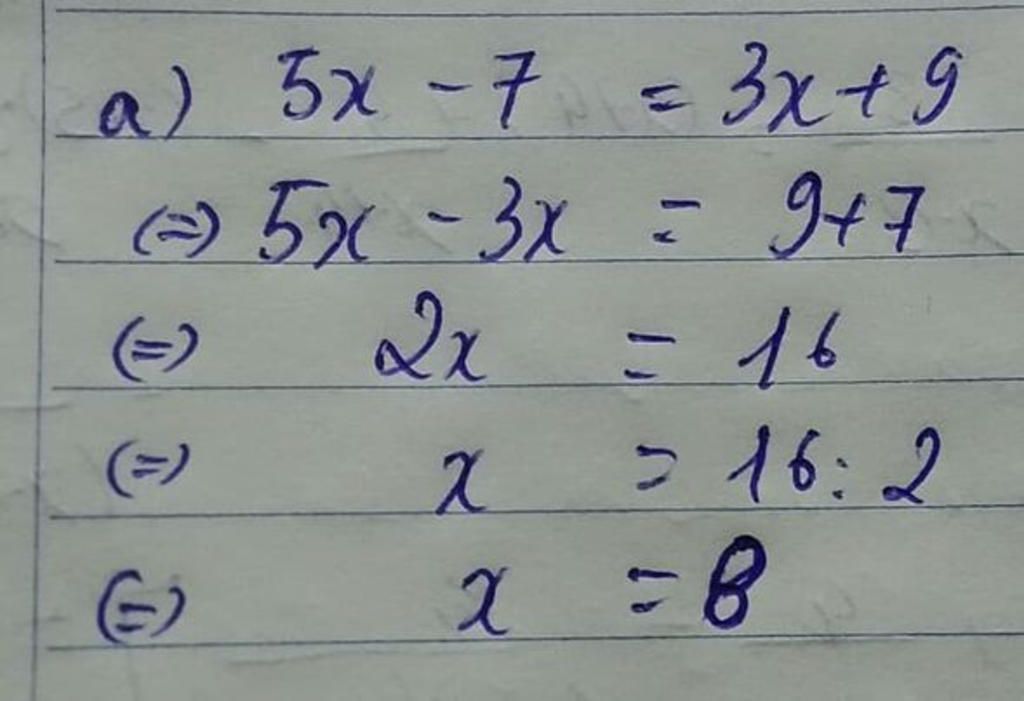 a) 5x - 7 = 3x + 9
(=) 5x - 3x = 9 + 7
(=) 2x = 16
(=) x = 16 : 2
(=) x = 8